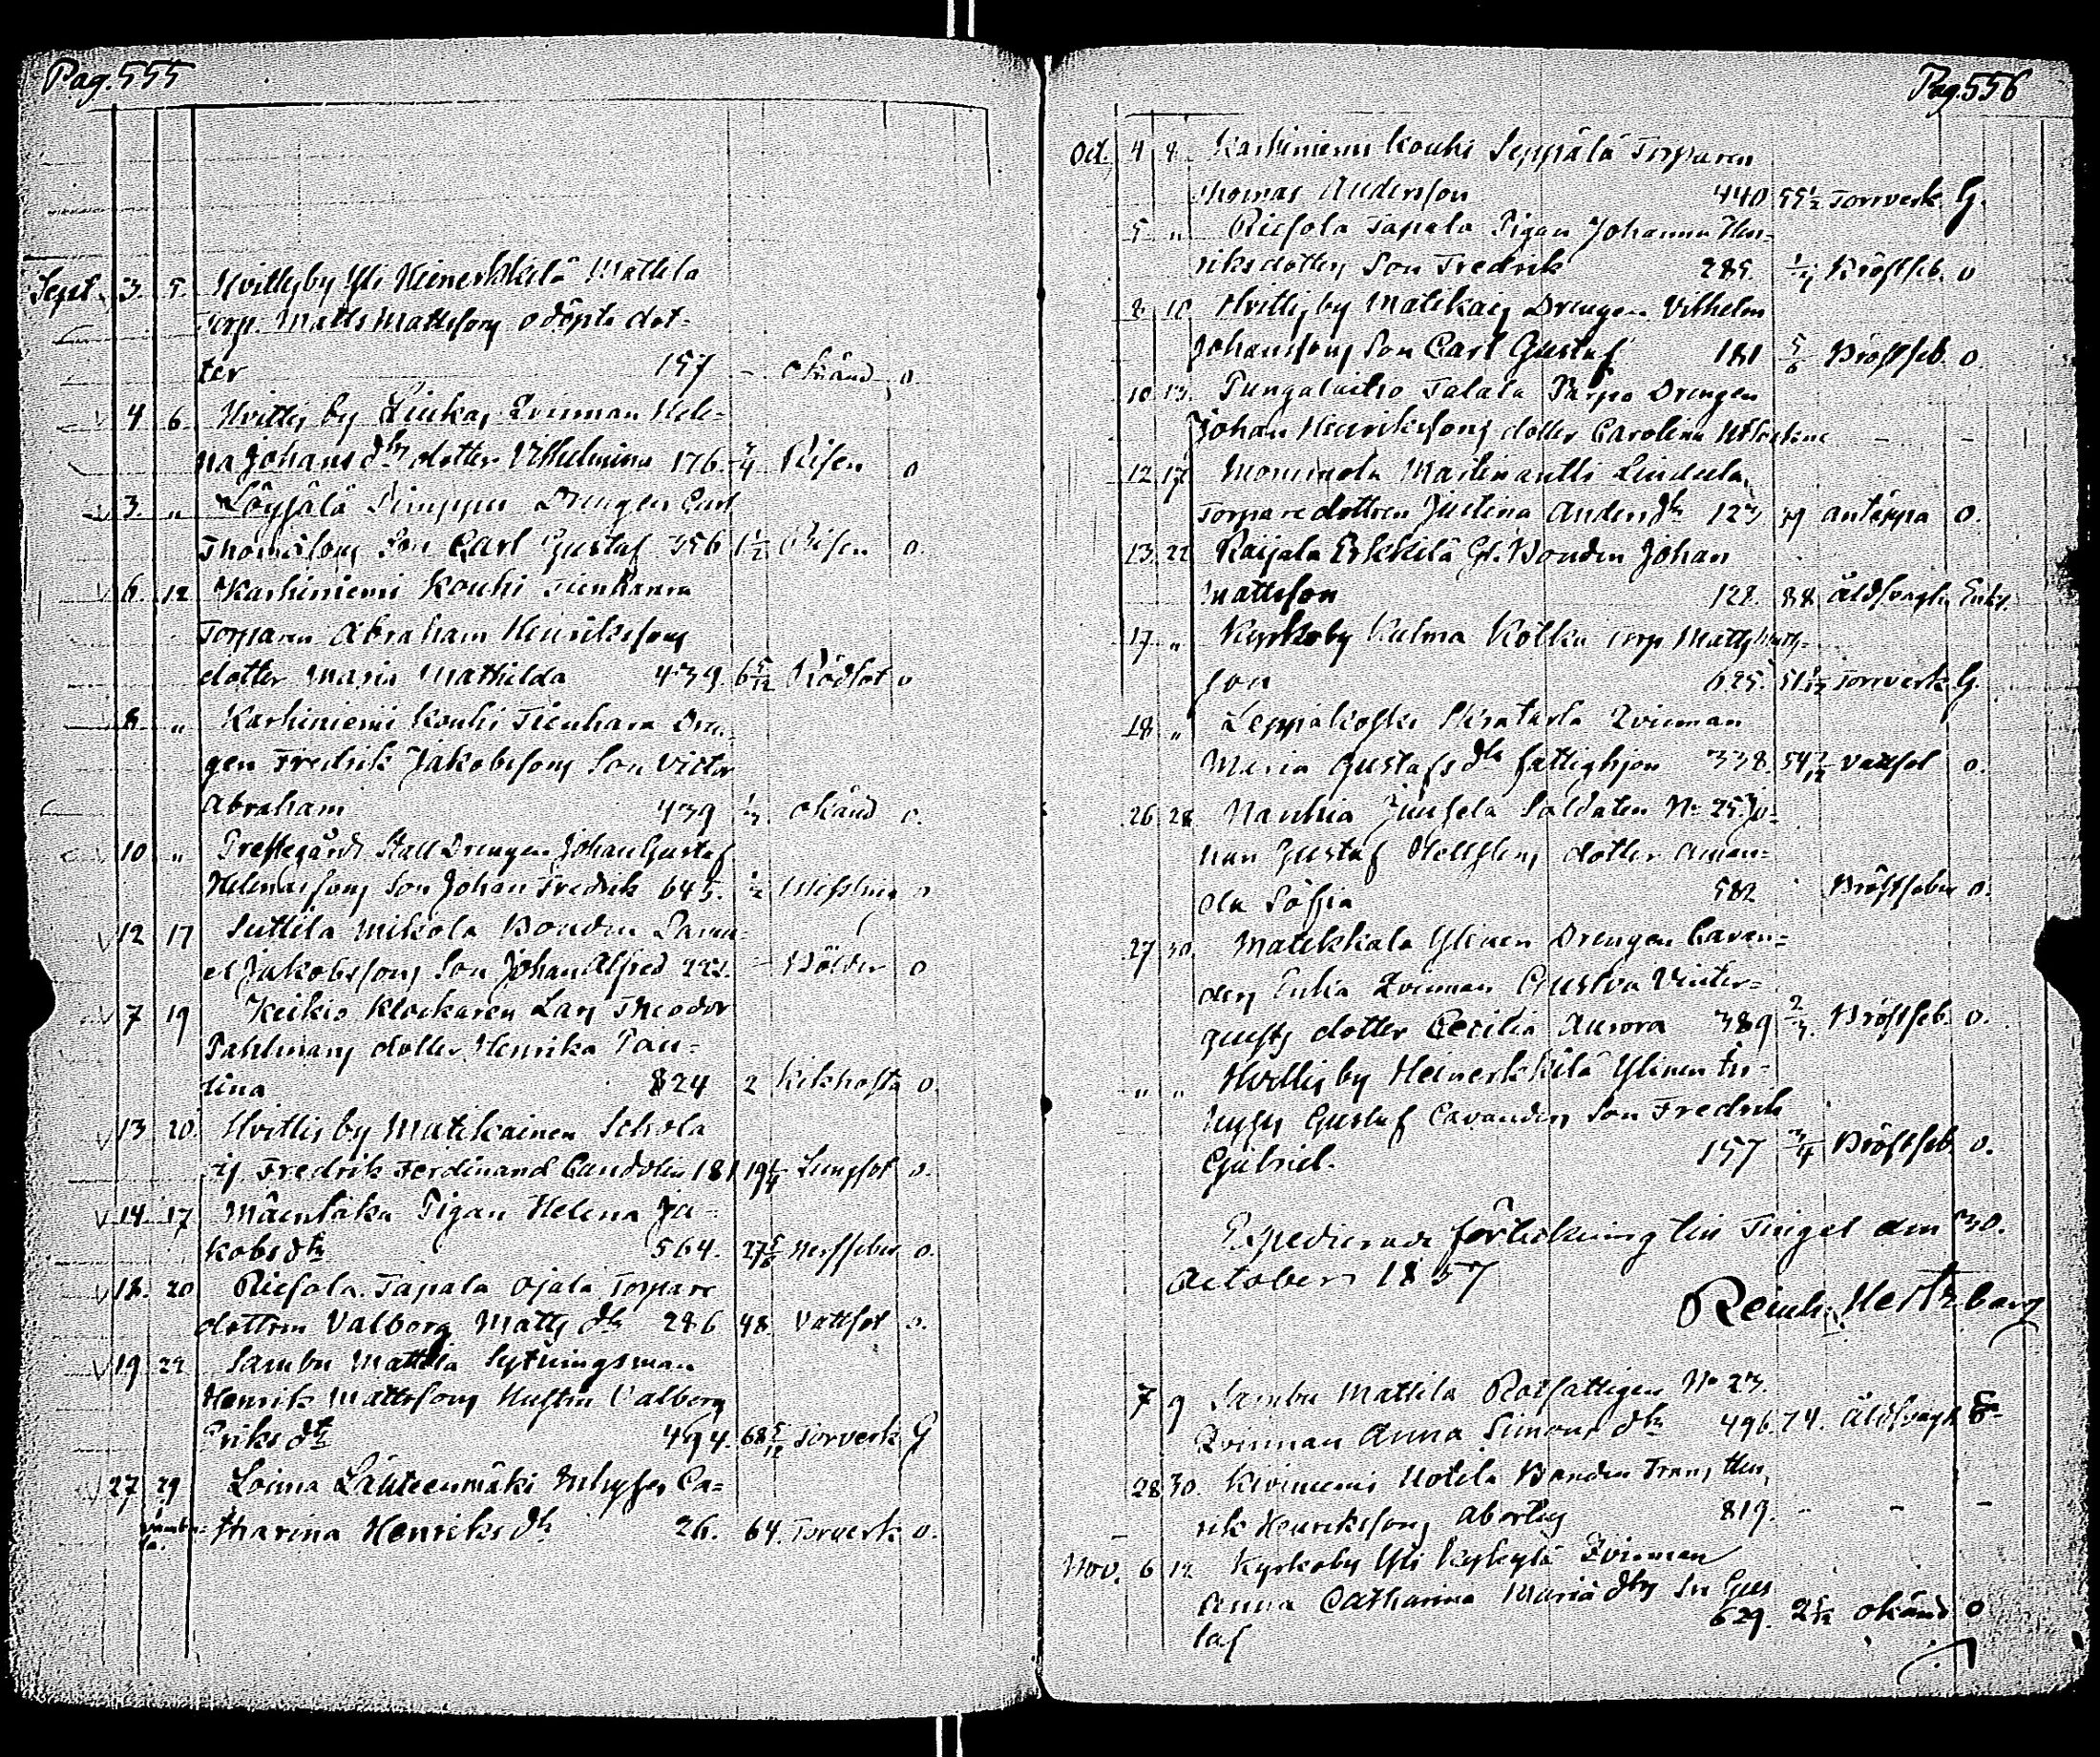 Pag. 555
Sept. 3. 5. Hvittisby Yli Heinerkkilä Mattila
Torp. Matts Mattssons odöpta dot-
ter 157 - okänd o.
4 6 Hvittis by Liuka, Qvinnan Hele-
na Johansdtrs dotter Vilhelmina 176. Risen o
3. " Löysälä Pimppu Drengen Carl
Thomassons Son Carl Gustaf 356 1 1/2 Risen o.
6. 12 Karhiniemi Kouhi Tienhaara
Torparen Abraham Henrikssons
dotter Maria Mathilda 439. 6 5/12 Rödsot o
8 " Karhiniemi Kouhi Tienhara Dren-
gen Fredrik Jakobssons Son Victor
Abraham 439 okänd o.
10 " Prestegårds Stall Drengen Johan Gustaf
Helenassons Son Johan Fredrik 645. 1/2 o
12 17 Suttila Mikola Bonden Samu-
el Jakobssons Son Johan Alfred 222. - Bölder o
7 19 Keikis Klockaren Lars Theodor
Pahlmans dotter Henrika Pau-
lina 824 2 Kikhosta o.
13 20. Hvittis by Matikainen Schola
ij. Fredrik Ferdinand Candolin 181 19 1/4 Lungsot o.
14 17 Mäenläka Pigan Helena Ja-
kobsdtr 564. 27 5/6 Nerffeber o.
18. 20 Riesola Tapala Ojala Torpare
dottren Valborg Mattsdtr 286 48. Vattsot o.
19 22 Sambu Mattila Sytningsman
Henrik Mattssons Hustru Valborg
Eriksdtr 494. 68 5/12 Torrverk G
27 29 Loima Lähteenmäki Inhyses Ca-
tharina Henriksdtr 26. 64. Torrverk o.
Pag. 556
Oct. 4 8. Karhiniemi Kouhi Seppälä Torparen
Thomas Andersson 440 55 1/2 Torrverk G.
5 " Riesola Tapala Pigan Johanna Hen-
riksdotters Son Fredrik 285. Bröstfeb. o
8 10 Hvittis by Matikais Drengen Vilhelm
Johanssons Son Carl Gustaf 181 5/6 Bröstfeb. o.
10 13. Pungalaitio Talala Parpo Drengen
Johan Henrikssons dotter Carolina - -
12 17 Mommola Martinantti Lindula,
Torparedottren Justina Andersdtr 123 39 antäppa o.
13. 22 Raijala Erkkilä Gl. Bonden Johan
Mattsson 122. 88 åldfvaghet Enkl.
17. " Kyrkoby Kulma Kölkä Torp Matts Matts-
son 625. Torrverk G.
18 " Leppäkoski Qvinnan
Maria Gustafsdtr fattighjon 338. 54 7/12 Vattsot o.
26 28 Nanhia Junsela Soldaten No 25. Jo-
han Gustaf dotter Aman-
da Sofia 582 Bröstfeber o.
27 30. Matikkala Ylinen Drengen Cavan-
ders Enka Qvinnan Gustva Vinter-
qvists dotter Cecilia Aurora 389 2/3. Bröstfeb. o.
" " Hvittis by Heinerkkilä Ylinen In-
hyses Gustaf Cavanders Son Fredrik
Gabriel. 157 3/4 Bröstfeb. o.
Expedierade förteckning till Tinget den 30.
October 1857
Reinh. Hertzberg
7 9 Sambu Mattila Rotfattigen No 23.
Qvinnan Anna Simonsdtr 496. 74. åldfvagh.
28 30. Kiviniemi Uotila Bonden Frans Hen
rik Henrikssons abortus 819. - - -
Nov. 6 12 Kyrkoby Yli Kyleylä Qvinnan
Anna Catharina Mariadtrs Son Gus
taf 629. 2 5/12 okänd o